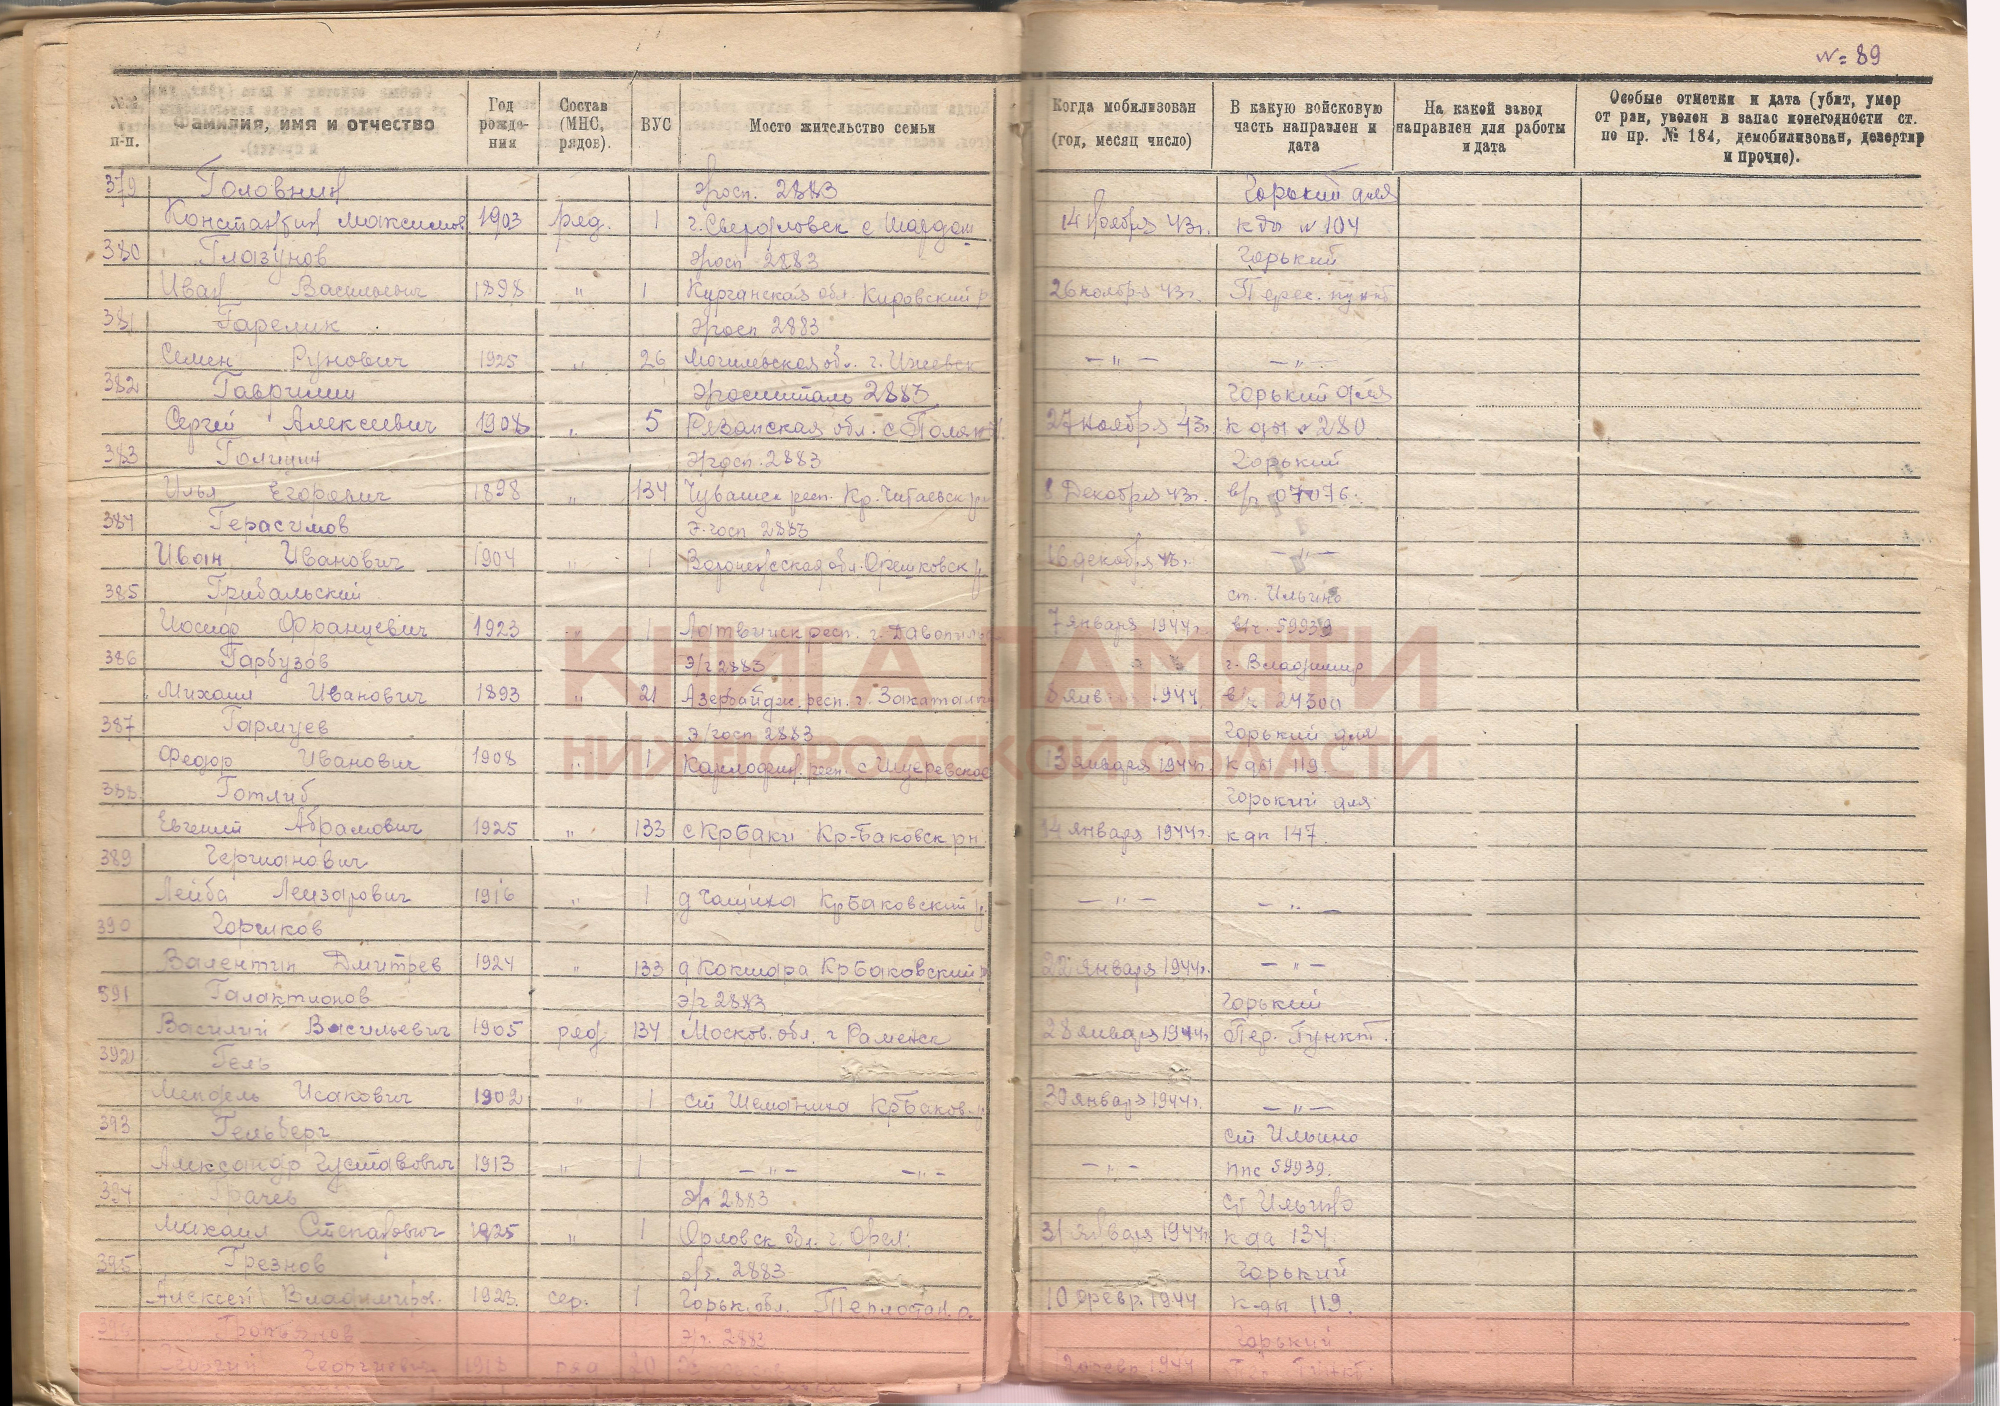 № 89
№№ п-п.
Фамилия, имя и отчество
Год рожде-ния
Состав (МНС, рядов).
ВУС
Мосто жительство семьи
Когда мобилизован (год, месяц число)
В какую войсковую часть направлен и дата
На какой завод направлен для работы и дата
Особые отметки и дата (убит, умер от ран, уволен в запас понегодности ст. по пр. № 184, демобилизован, дезертир и прочие).
379 Головнин Эгосп. 2883 Горький для
Константин Максимов 1903 ряд. 1 г. Свердловск с 14 ноября 43г. кды № 104
380 Глазунов Эгосп 2883 Горький
Иван Васильевич 1898 " 1 Курганская обл. Кировский р 26 ноября 43г. Перес. пункт
381 Гарелик Эгосп 2883
Семен Рунович 1925 " 26 Могилевская обл. г. Ижевск — " — — " —
382 Гаврилин Эгоспиталь 2883 Горький для
Сергей Алексеевич 1908 " 5 Рязанская обл. с 27 ноября 43г. к ды № 280
383 Голицин Эгосп. 2883 Горький
Илья Егорович 1898 " 134 Чувашск респ. 8 Декабря 43г. в/ч 07076.
384 Герасимов Э.госп 2883
Иван Иванович 1904 " 1 Воронежская обл. 16 декабря 43г. — " —
385 Грибальский ст. Ильино
Иосиф Францевич 1923 " 1 Латвийск респ. г. 7 января 1944г. в/ч. 59939
386 Гарбузов Э/г 2883 г. Владимир
Михаил Иванович 1893 " 21 Азербайдж. респ. г. Закаталы 8 янв 1944 в/ч 24300
387 Гармуев Э/госп 2883 Горький для
Федор Иванович 1908 " 1 13 января 1944г. к ды 119.
388 Готлиб Горький для
Евгений Абрамович 1925 " 133 с КрБаки Кр-Баковск рн. 14 января 1944г. к дп 147.
389 Гермианович
Лейба Лейзарович 1916 " 1 д КрБаковский р. — " — — " —
390 Горшков
Валентин Дмитрев 1924 " 133 д Кокшара КрБаковский 22 января 1944г. — " —
391 Галактионов Э/г 2883 Горький
Василий Васильевич 1905 ряд. 134 Москов. обл. г Раменск 28 января 1944г. Пер. Пункт.
392 Гель
Мендель Исакович 1902 " 1 ст Шеманиха КрБаков. 30 января 1944г. — " —
393 Гельберг ст Ильино
Александр Густавович 1913 " 1 — " — — " — — " — ппс 59939.
394 Грачев Э/г 2883 Ст Ильино
Михаил Степанович 1925 " 1 Орловск обл. г. Орел. 31 января 1944г. к да 134.
395 Грезнов 2883 Горький
Алексей Владимиров. 1923. сер. 1 Горьк. обл. 10 февр. 1944 к-ды 119.
Э/г. 2883 Горький
Георгий Георгиевич ряд 20 февр 1944 Пункт.
КНИГА ПАМЯТИ
НИЖЕГОРОДСКОЙ ОБЛАСТИ